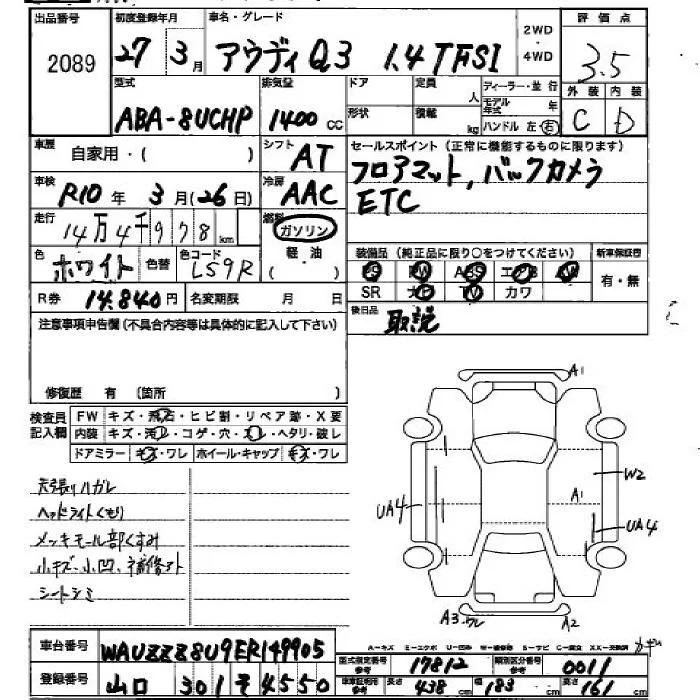 出品番号 初度登録年月 車名・グレード 2WD・4WD 評価点
2089 27 3月 アウディQ3 1.4 TFSI 3.5
型式 排気量 ドア 定員 人 ディーラー・並行
モデル年式 年 外装 内装
ABA-8UCHP 1400cc 形状 積載 kg ハンドル 左・右 C D
車歴 シフト セールスポイント(正常に機能するものに限ります)
自家用・( ) AT フロアマット, バックカメラ
車検 冷房 ETC
R10年 3月(26日) AAC
走行 燃料
14万4千978km ガソリン
色 色コード 軽油 装備品(純正品に限り○をつけてください) 新車保証書
ホワイト 色替 LS9R ( ) PS PW ABS エアB AW 有・無
R券 14.840円 名変期限 月 日 SR ナビ TV カワ
注意事項申告欄(不具合内容等は具体的に記入して下さい) 後日品 取説
修復歴 有 (箇所 )
検査員記入欄 FW キズ・飛石・ヒビ割・リペア跡・X要
内装 キズ・汚レ・コゲ・穴・スレ・ヘタリ・破レ
ドアミラー キズ・ワレ ホイール・キャップ キズ・ワレ
天張りハガレ
ヘッドライトくもり
メッキモール部くすみ
小キズ、小凹、補修アト
シートシミ
A1
W2
A1
UA4
UA4
A3 ワレ A2
A-キズ E-エクボ U-凹み W-補修跡 S-サビ C-腐食 XX-交換済
車台番号 WAUZZZ8U9ER149905 型式指定番号 参考 17812 類別区分番号 参考 0011
登録番号 山口 301 そ 4550 車車証明用 参考 長さ 438cm 幅 183cm 高さ 161cm